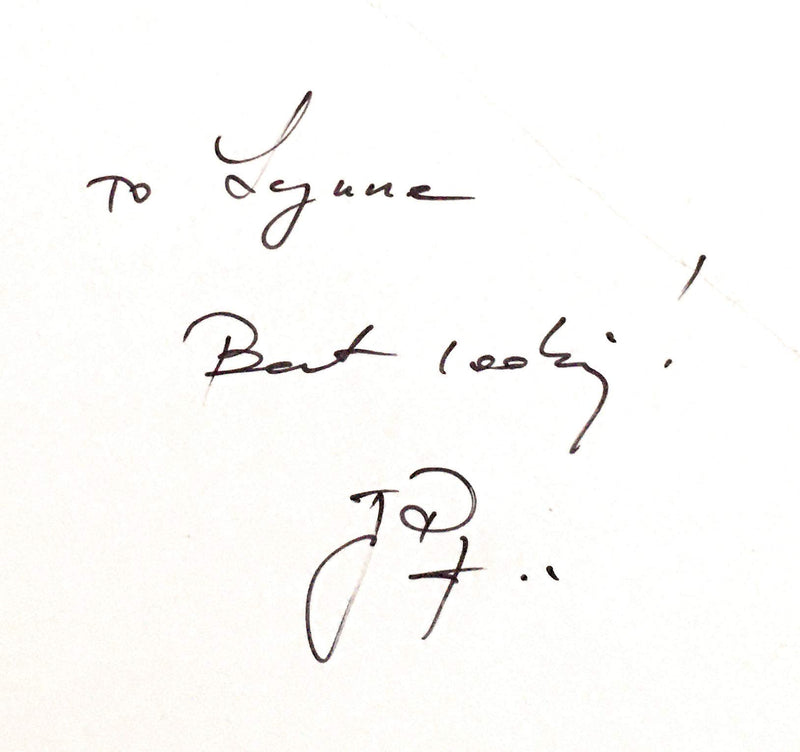 To Lynne
Best looking!